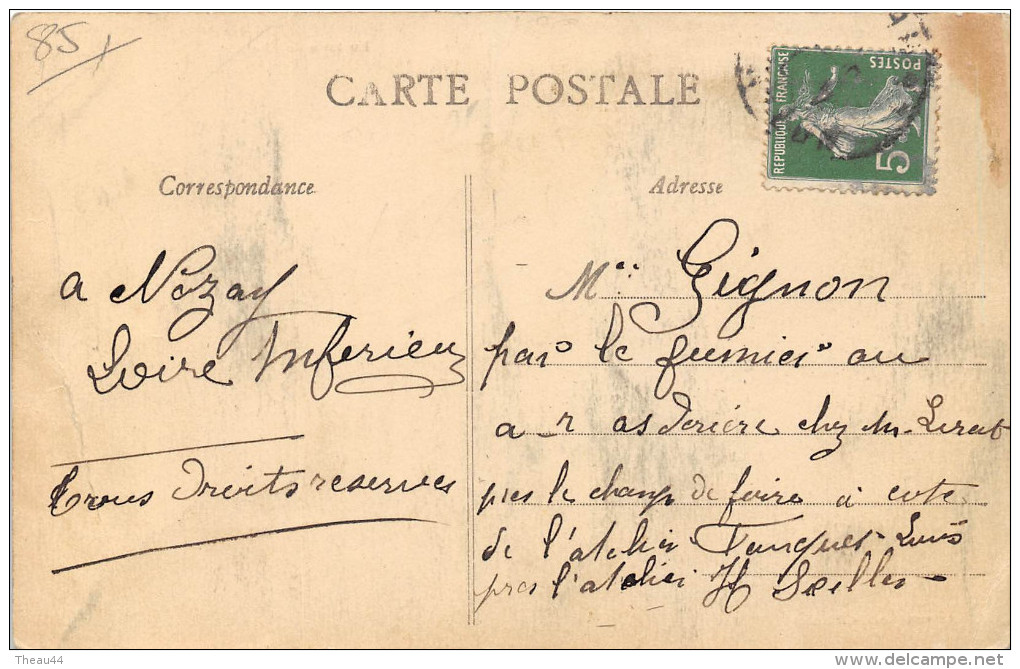 85
CARTE POSTALE
REPUBLIQUE FRANÇAISE
POSTES
5c
Correspondance
Adresse
a Nozay
Loire Inferieu
Trous droits reserves
M Gignon
par le fumier au
a r as deriere chez M. Lerat
pres le champ de foire a cote
de l'atelier Fanquet Louis
pres l'atelier H Seller
Theau44
www.delcampe.net